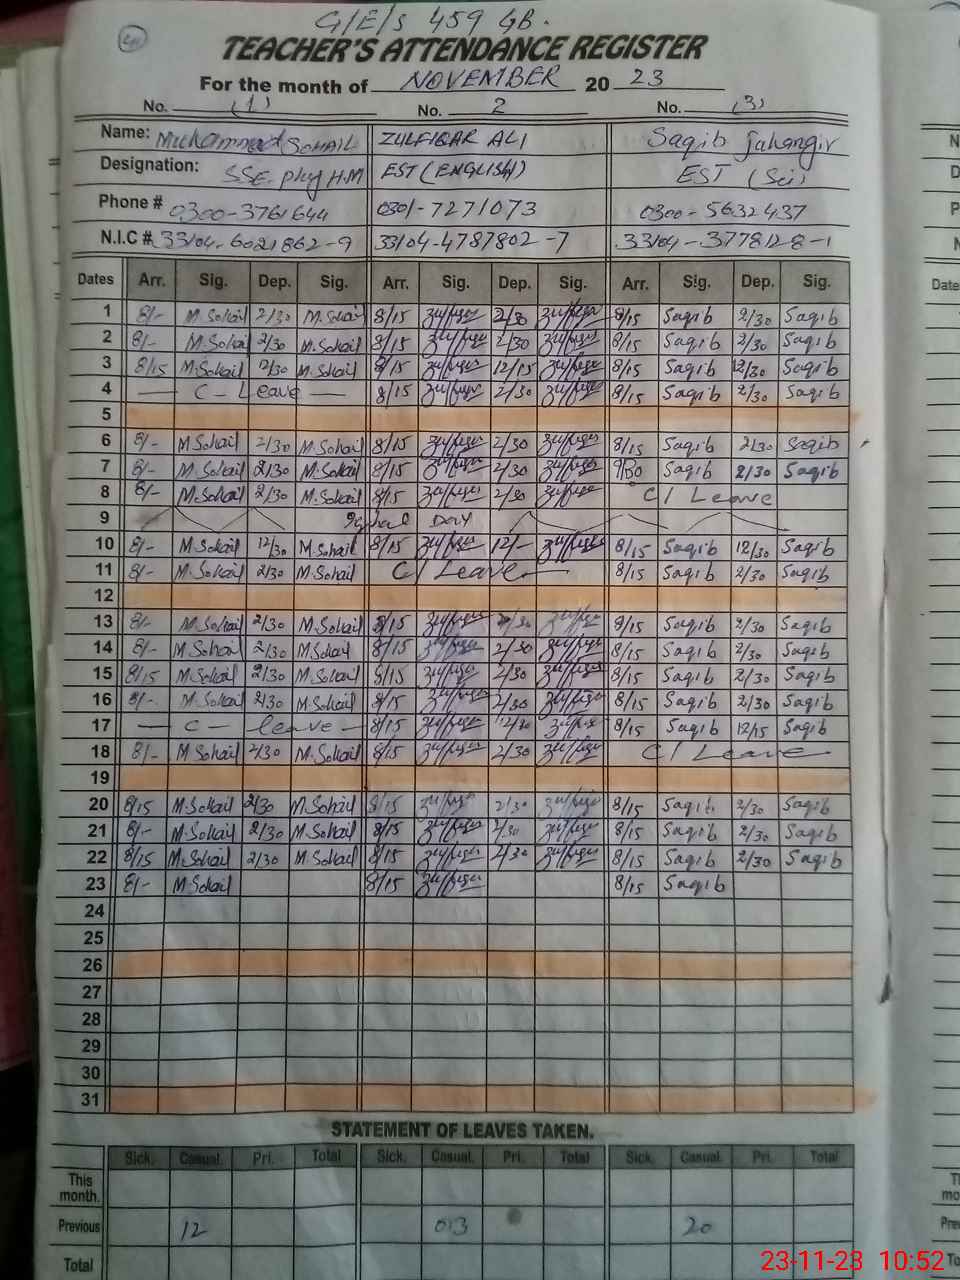 G/E/S 459 GB.
TEACHER'S ATTENDANCE REGISTER
For the month of NOVEMBER 2023
No. (1) No. 2 No. (3)
Name: Muhammad SOHAIL ZULFIQAR ALI Saqib Jahangir
Designation: SSE. H.M EST (ENGLISH) EST (Sci)
Phone # 0300-3761644 0301-7271073 0300-5632437
N.I.C # 33104-6021862-9 33104-4787802-7 33104-3778128-1
Dates Arr. Sig. Dep. Sig. Arr. Sig. Dep. Sig. Arr. Sig. Dep. Sig.
1 8/- M.Sohail 2/30 M.Sohail 8/15 2/30 8/15 Saqib 2/30 Saqib
2 8/- M.Sohail 2/30 M.Sohail 8/15 2/30 8/15 Saqib 2/30 Saqib
3 8/15 M.Sohail 12/30 M.Sohail 8/15 12/15 8/15 Saqib 12/30 Saqib
4 — C - Leave — 8/15 2/30 8/15 Saqib 2/30 Saqib
5
6 8/- M.Sohail 2/30 M.Sohail 8/15 2/30 8/15 Saqib 2/30 Saqib
7 8/- M.Sohail 2/30 M.Sohail 8/15 2/30 9/30 Saqib 2/30 Saqib
8 8/- M.Sohail 2/30 M.Sohail 8/15 2/30 C/ Leave
9 Iqbal Day
10 8/- M.Sohail 12/30 M.Sohail 8/15 12/- 8/15 Saqib 12/30 Saqib
11 8/- M.Sohail 2/30 M.Sohail C/ Leave 8/15 Saqib 2/30 Saqib
12
13 8/- M.Sohail 2/30 M.Sohail 8/15 2/30 8/15 Saqib 2/30 Saqib
14 8/- M.Sohail 2/30 M.Sohail 8/15 2/30 8/15 Saqib 2/30 Saqib
15 8/15 M.Sohail 2/30 M.Sohail 8/15 2/30 8/15 Saqib 2/30 Saqib
16 8/- M.Sohail 2/30 M.Sohail 8/15 2/30 8/15 Saqib 2/30 Saqib
17 — C - leave — 8/15 8/15 Saqib 12/15 Saqib
18 8/- M.Sohail 2/30 M.Sohail 8/15 2/30 C/ Leave
19
20 8/15 M.Sohail 2/30 M.Sohail 8/15 2/30 8/15 Saqib 2/30 Saqib
21 8/- M.Sohail 2/30 M.Sohail 8/15 2/30 8/15 Saqib 2/30 Saqib
22 8/15 M.Sohail 2/30 M.Sohail 8/15 2/30 8/15 Saqib 2/30 Saqib
23 8/- M.Sohail 8/15 8/15 Saqib
24
25
26
27
28
29
30
31
STATEMENT OF LEAVES TAKEN.
Sick. Casual. Pri. Total Sick. Casual. Pri. Total Sick. Casual. Pri. Total
This month.
Previous 12 013 20
Total
23-11-23 10:52